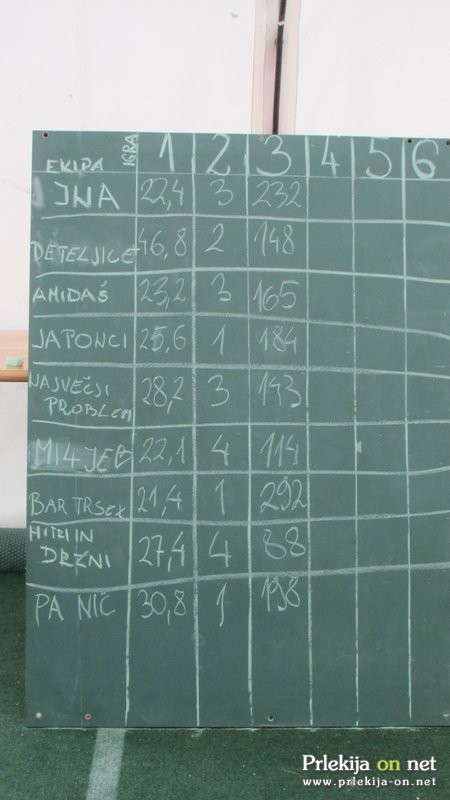 EKIPA IGRA 1 2 3 4 5 6
JNA 22,4 3 232
DETELJICE 46,8 2 148
AMIDAŠ 23,2 3 165
JAPONCI 25,6 1 184
NAJVEČJI PROBLEM 28,2 3 143
MI4JEB 22,1 4 114
BAR TRSEK 21,4 1 292
HITRI IN DRZNI 27,4 4 88
PA NIČ 30,8 1 198
Prlekija on net
www.prlekija-on.net